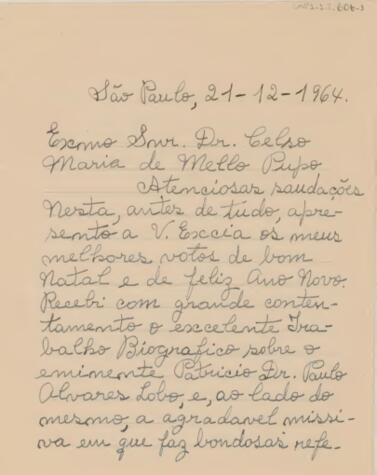 São Paulo, 21-12-1964.
Exmo Snr. Dr. Celso
Maria de Mello Pupo
Atenciosas saudações
Nesta, antes de tudo, apre-
sento a V. Excia os meus
melhores votos de bom
Natal e de feliz Ano Novo.
Recebi com grande conten-
tamento o excelente Tra-
balho Biografico sobre o
eminente Patricio Dr. Paulo
Alvares Lobo, e, ao lado do
mesmo, a agradavel missi-
va em que faz bondosas refe-